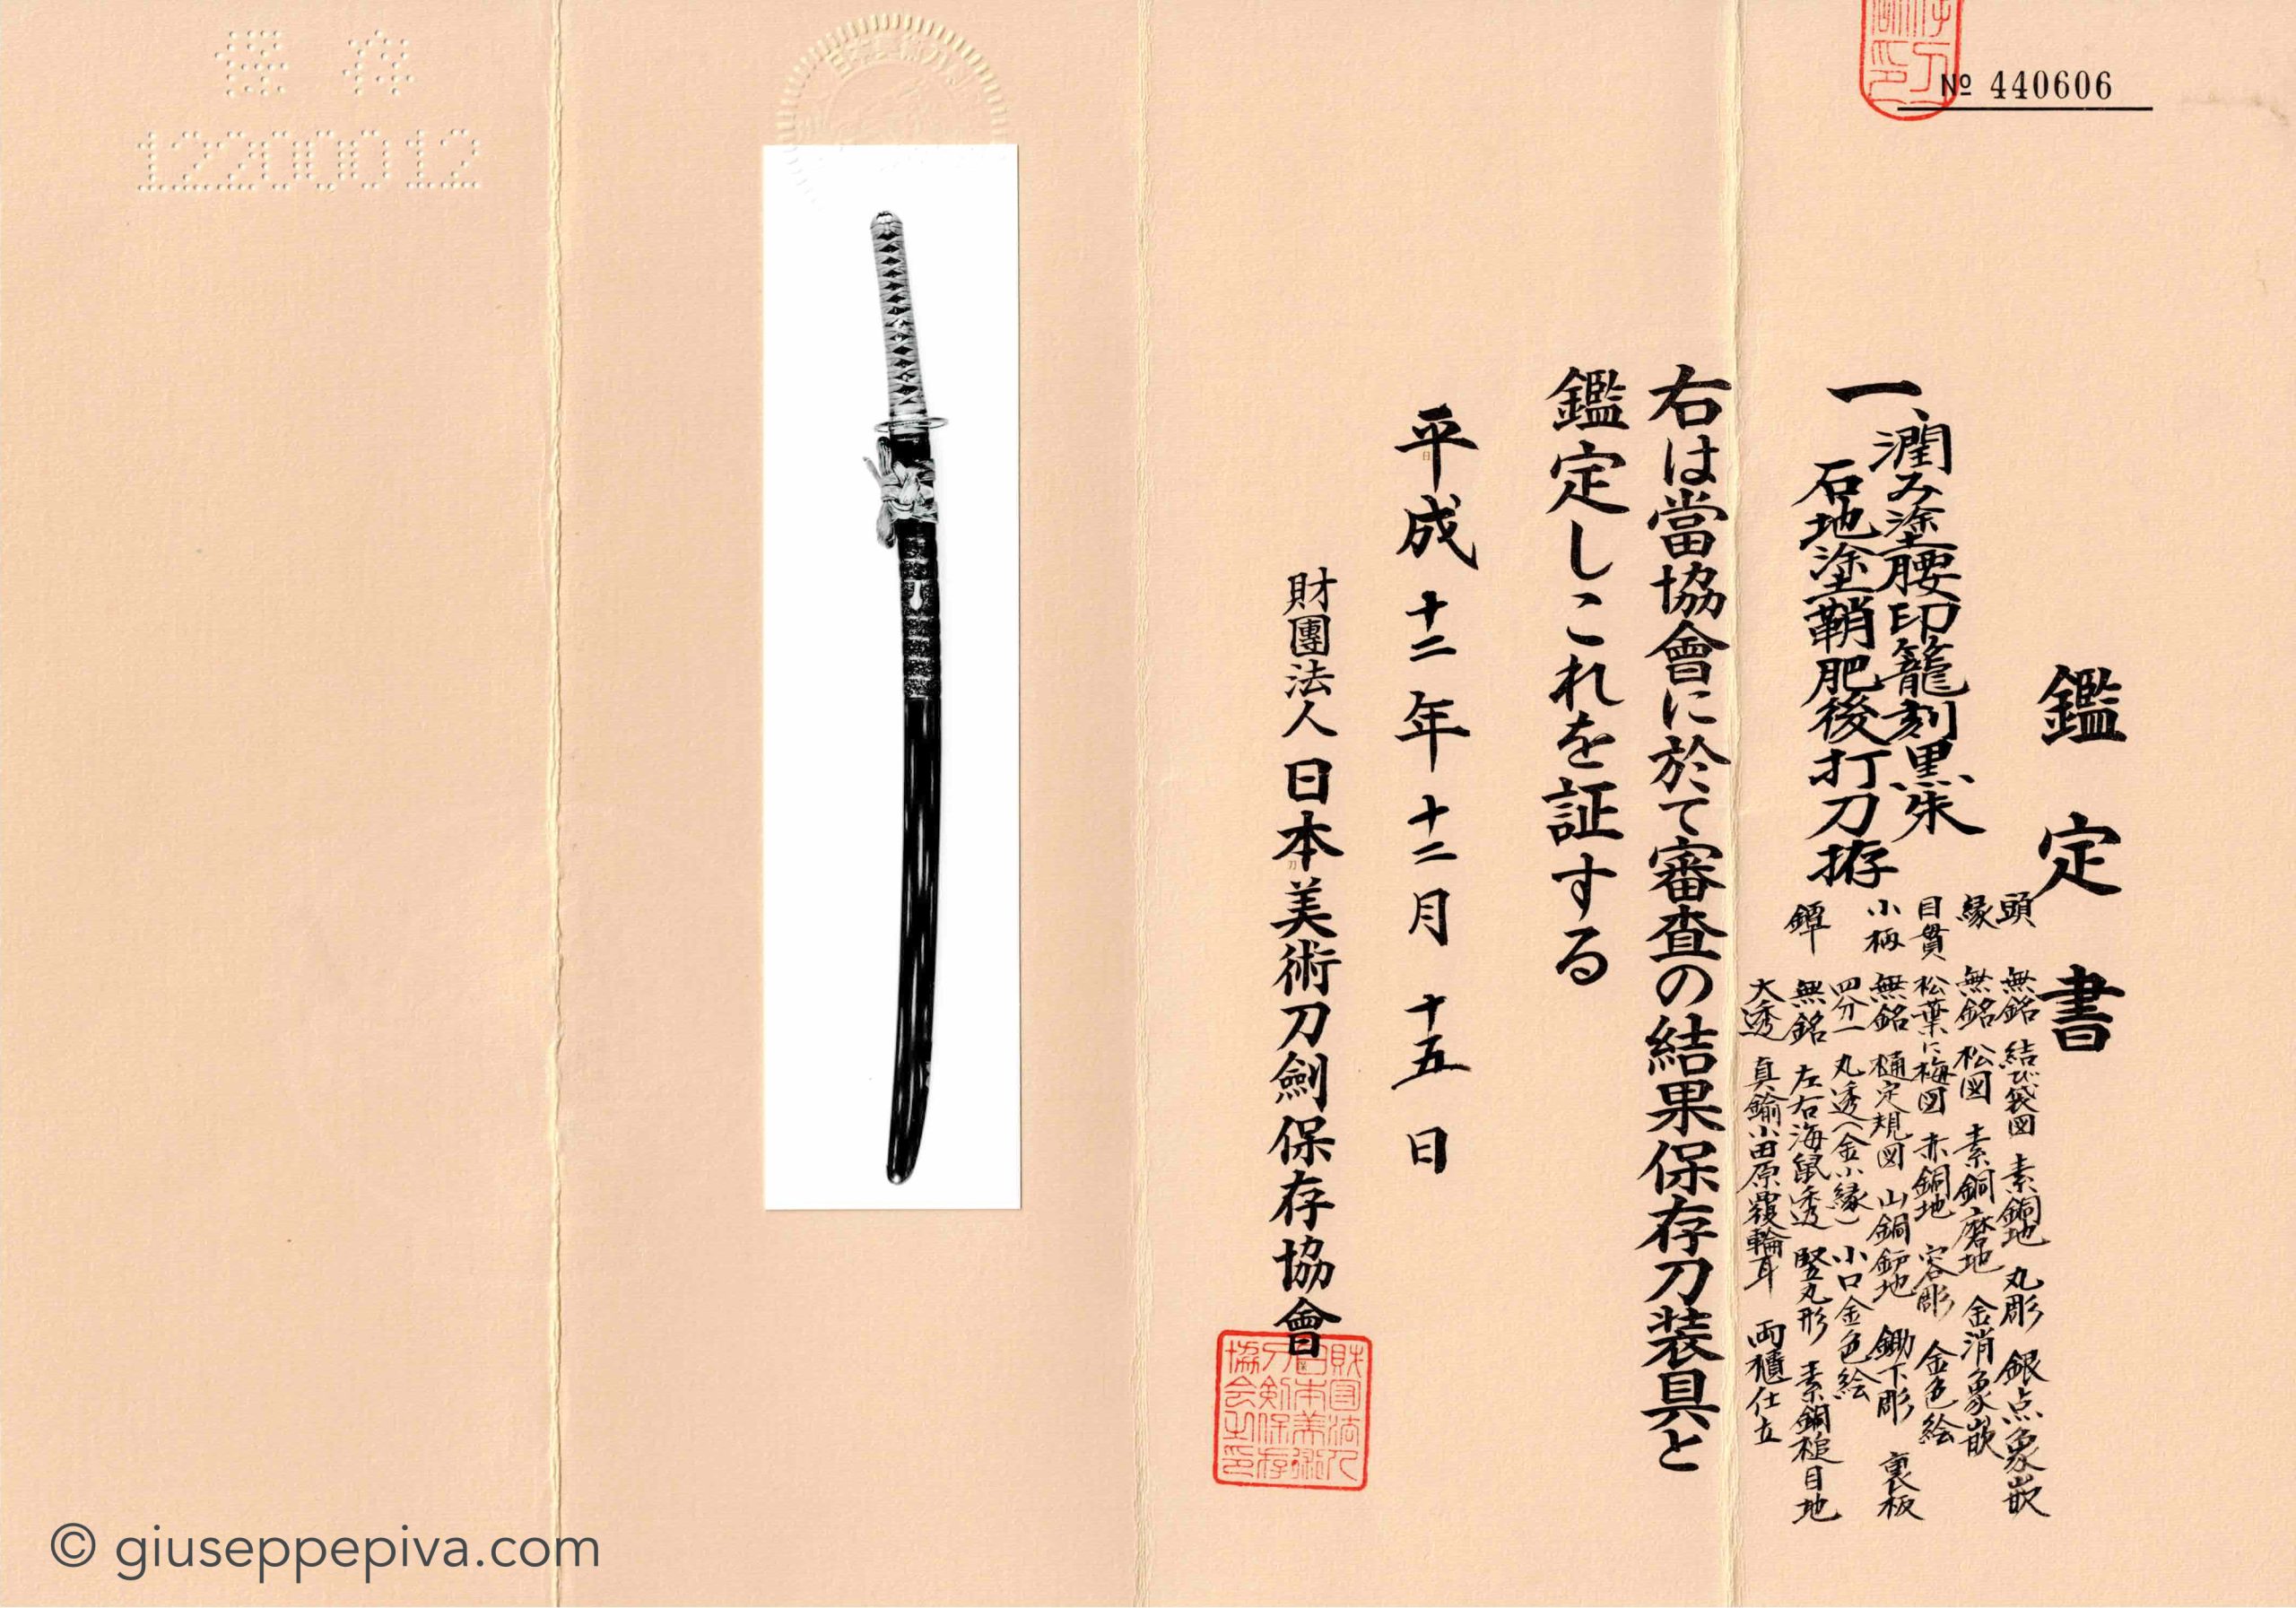 № 440606
鑑定書
一、潤み塗腰印籠刻黒朱
石地塗鞘肥後打刀拵
頭 無銘 結び袋図 素銅地 丸彫 銀点象嵌
縁 無銘 松図 素銅磨地 金消象嵌
目貫 松葉に梅図 赤銅地 容彫 金色絵
小柄 無銘 樋定規図 山銅鉐地 鋤下彫 裏板
四分一 丸透(金小縁) 小口金色絵
鐔 無銘 左右海鼠透 竪丸形 素銅槌目地
大透 真鍮小田原覆輪耳 両櫃仕立
右は當協會に於て審査の結果保存刀装具と
鑑定しこれを証する
平成十二年十二月十五日
財團法人 日本美術刀劍保存協會
財団法人日本美術刀剣保存協会之印
保存
12200012
© giuseppepiva.com